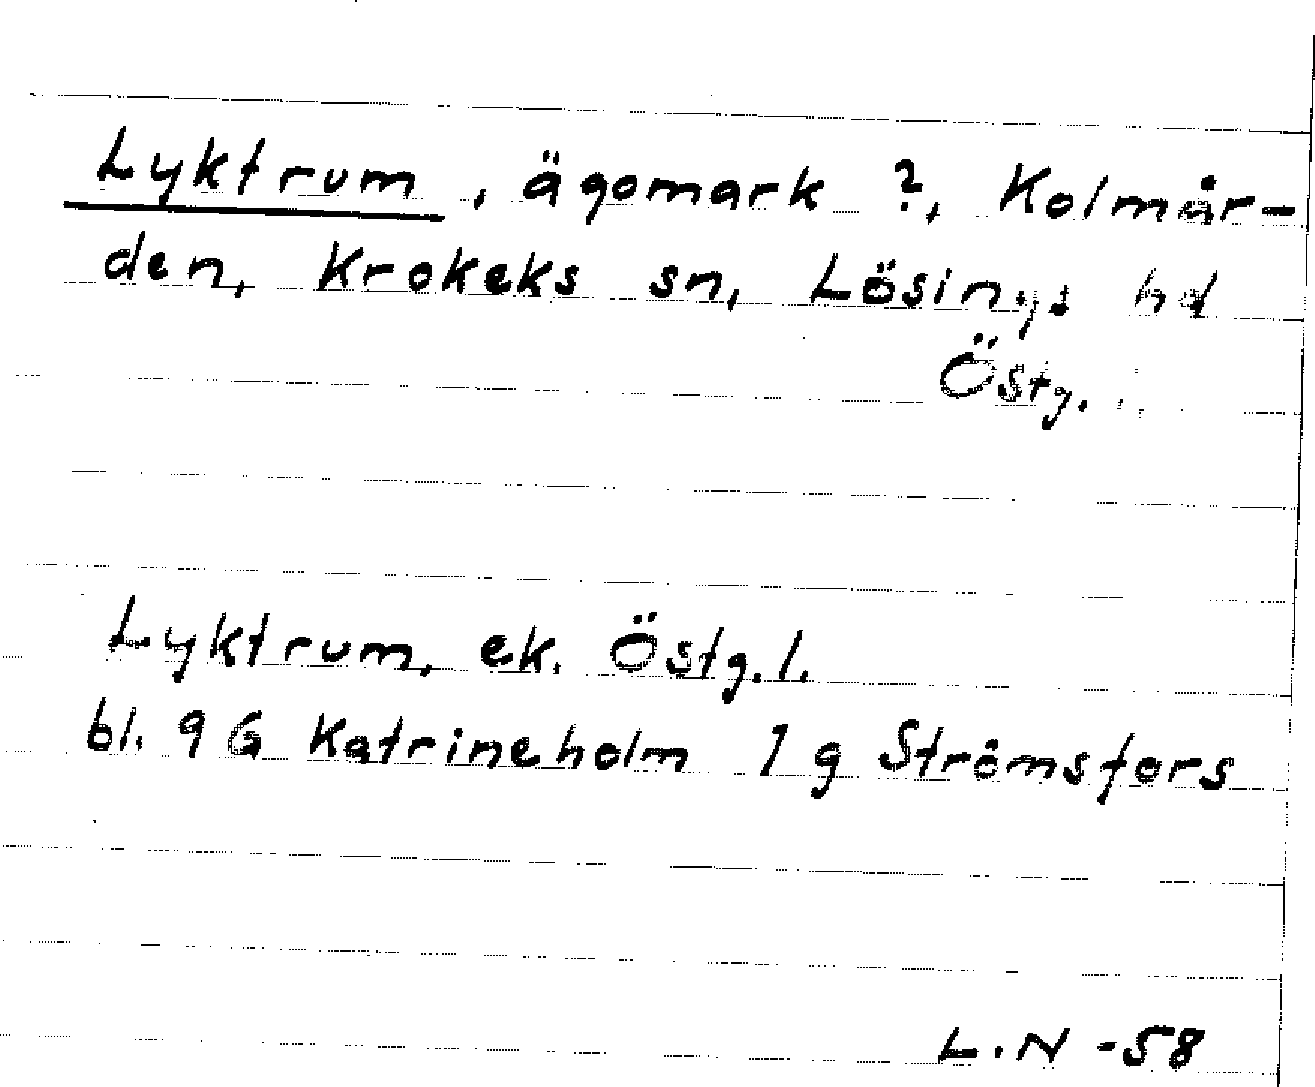 Lyktrum, ägomark ?, Kolmår-
den, Krokeks sn, Lösings hd
Östg.
Lyktrum, ek. Östg.l.
bl. 9 G Katrineholm 1 g Strömsfors
L.N -58